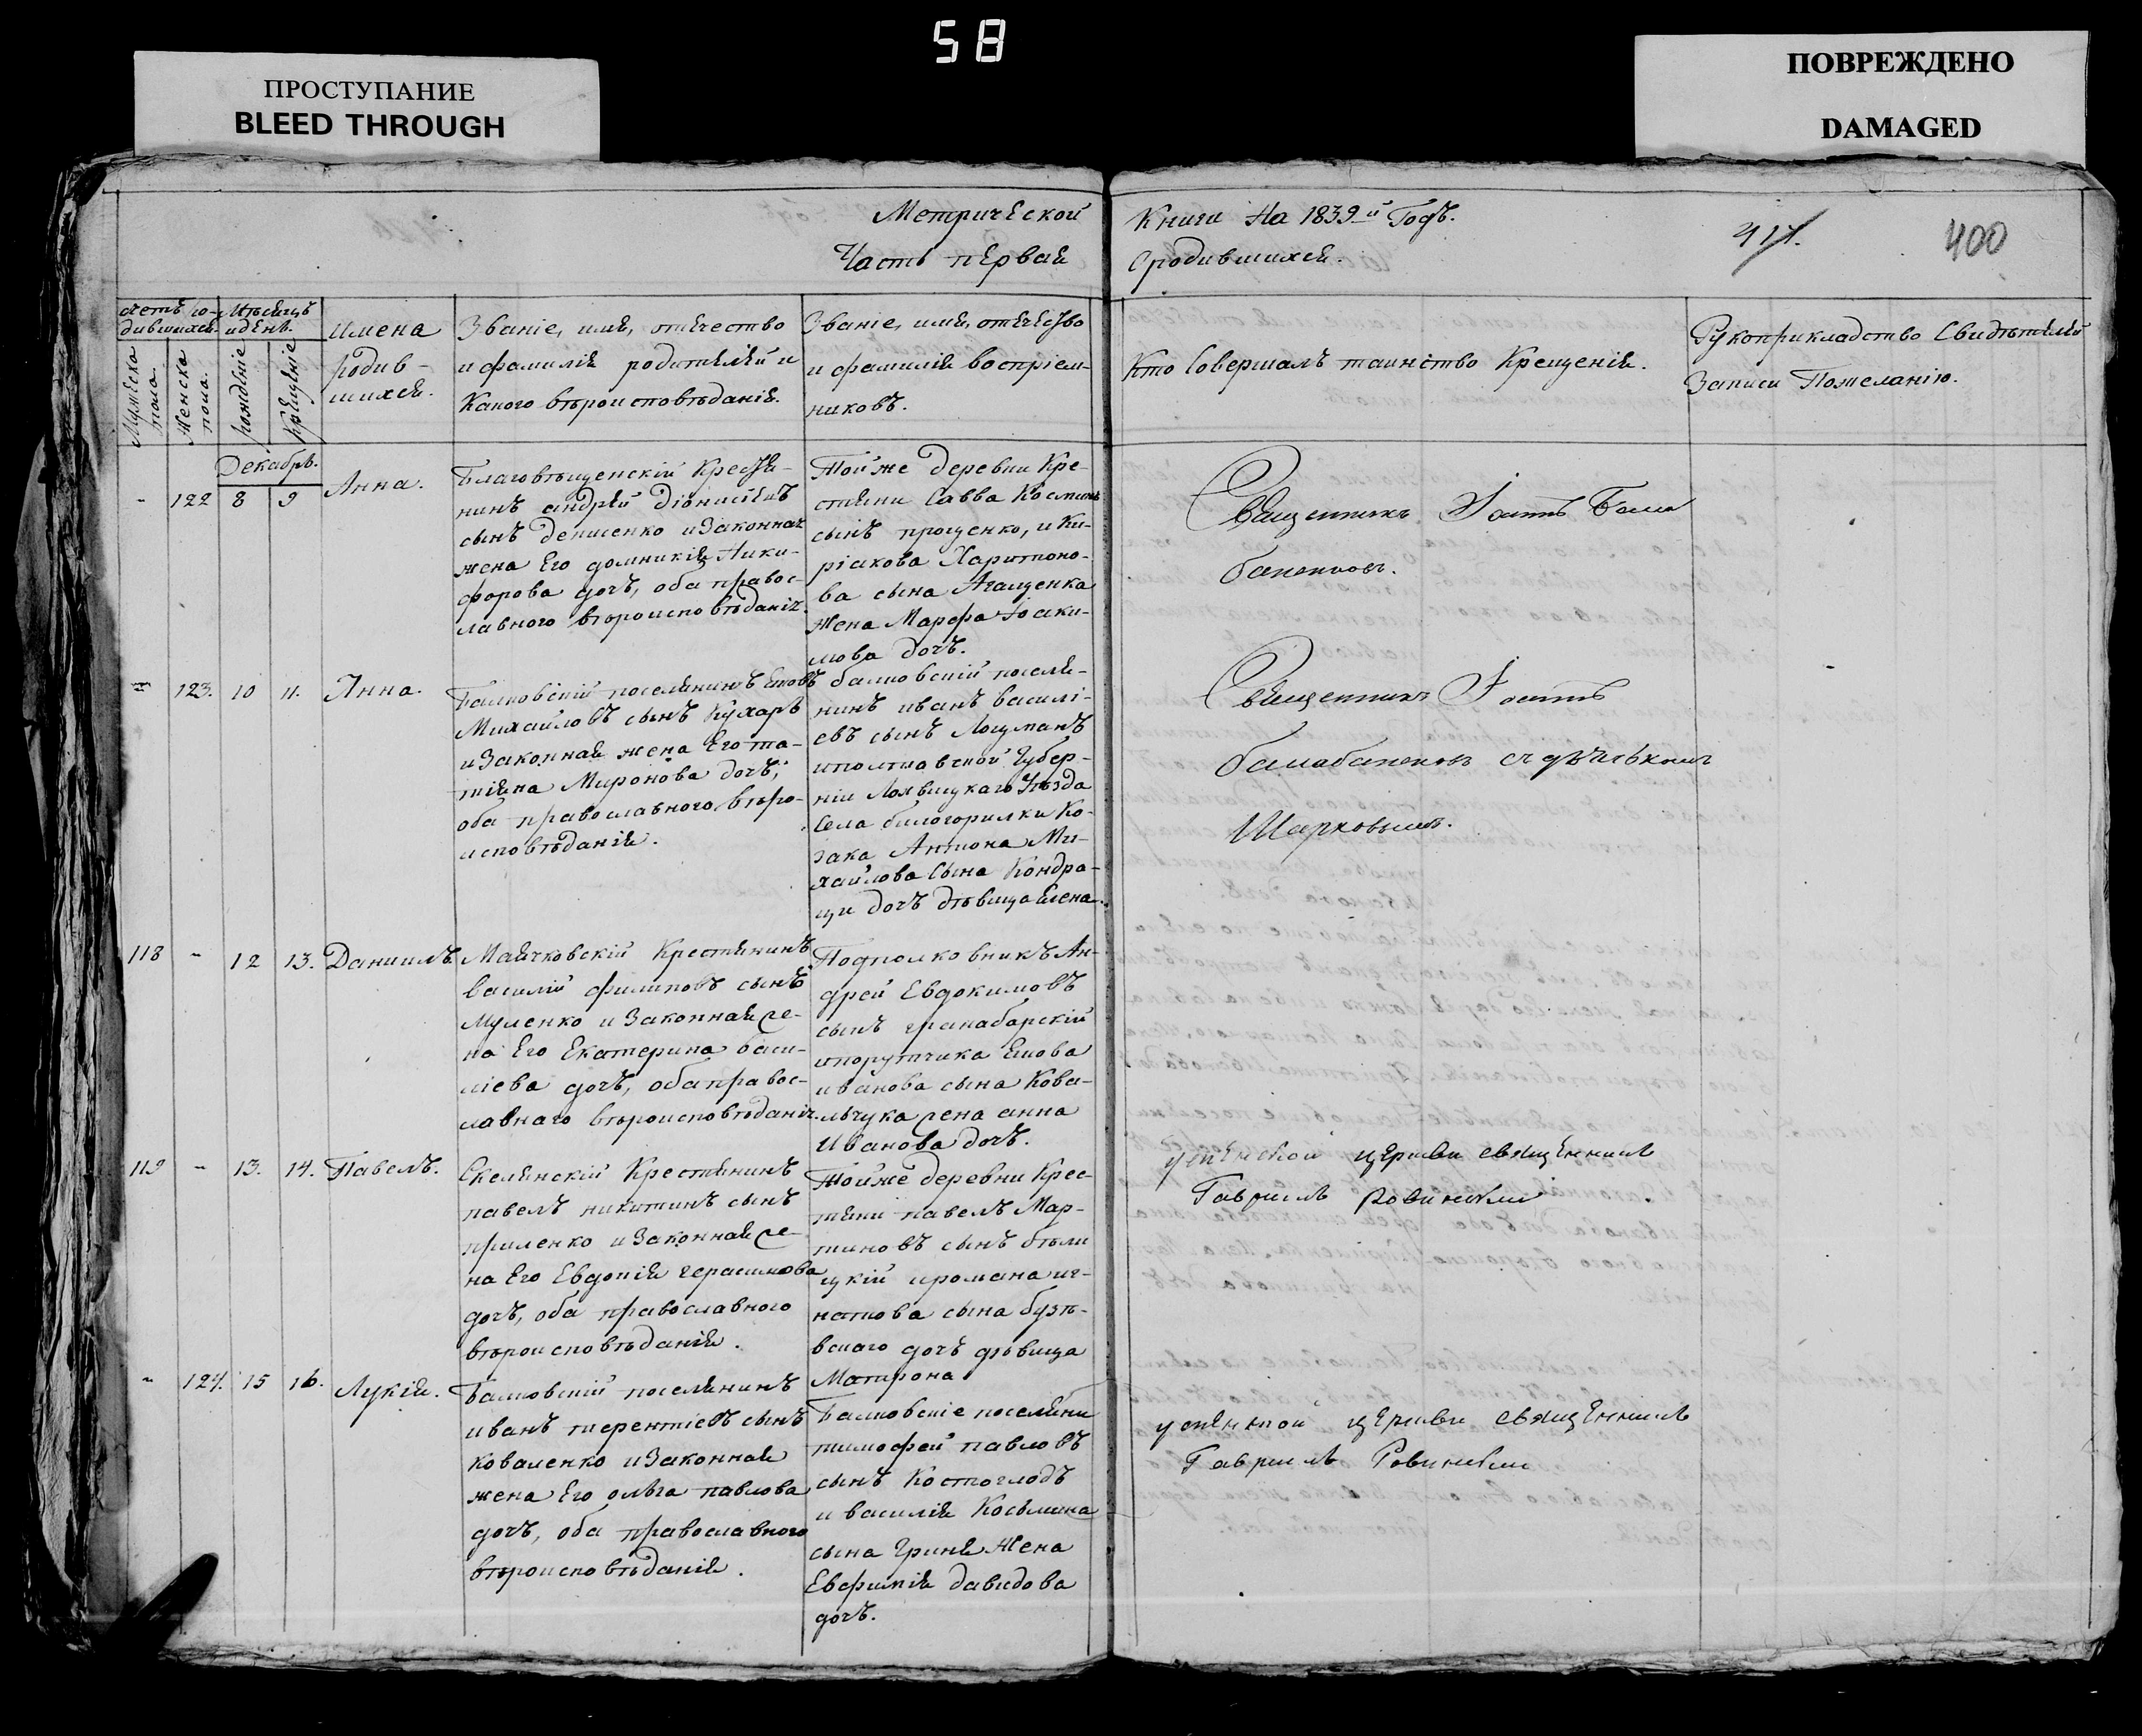 58
ПРОСТУПАНИЕ
BLEED THROUGH
ПОВРЕЖДЕНО
DAMAGED
Метрической
Часть первая
Книги На 1839й Годъ.
О родившихся.
417.
400
счетъ ро-
дившихся.
Мѣсяцъ
и день.
Мужеска
пола.
Женска
пола.
рожденіе
Крещеніе
имена
родив-
шихся.
Званіе, имя, отчество
и фамилія родителей и
Какого вѣроисповѣданія.
Званіе, имя, отчество
и фамилія воспріем-
никовъ.
Кто Совершалъ таинство Крещенія.
Рукоприкладство Свидѣтелей
Записи Пожеланію.
Декабрь.
- 122 8 9
Анна.
Благовѣщенскій Крестья-
нинъ андрей діонисіевъ
сынъ денисенко и Законная
жена Его домникія Ники-
форова дочь, оба правос-
лавного вѣроисповѣданія.
Той же деревни Кре-
стяни Савва Космин
сынъ проценко, и Ки-
ріакова Харитоно-
ва сына Агащенка
Жена Марфа Іоаки-
мова дочь.
Священникъ Іоаннъ Бала
баненковъ.
- 123. 10 11. Анна.
Балковскій поселянинъ Яковъ
Михайловъ сынъ Кухаръ
и Законная жена Его та-
тіяна Миронова дочь,
оба православного вѣро-
исповѣданія.
балковскій поселя-
нинъ иванъ василі-
евъ сынъ Лоцманъ
и полтавской Губер-
ніи Лохвицкаго Уѣзда
Села билогорилки Ко-
зака Антона Ми-
хайлова Сына Кондра-
ци дочь дѣвица Елена.
Священникъ Іоаннъ
балабаненковъ съ дячькомъ
Шарковымъ.
118 - 12 13. Даниилъ.
Маячковскій Крестянинъ
василій филиповъ сынъ
Муленко и Законная же-
на Его Екатерина васи-
ліева дочь, оба правос-
лавнаго вѣроисповѣданія.
Подполковникъ Ан-
дрей Евдокимовъ
сынъ гранабарскій
и порутчика Якова
иванова сына Кова-
льчука жена анна
Иванова дочь.
119 - 13. 14. Павелъ.
Скелянскій Крестянинъ
павелъ никитинъ сынъ
приленко и Законная же-
на Его Евдокія герасимова
дочь, оба православного
вѣроисповѣданія.
Той же деревни Крес-
тяни павелъ Мар-
тиновъ сынъ бѣли
цкій и романа иг-
натова сына бузѣ-
вскаго дочь дѣвица
Матрона
успенской церкви священникъ
Гавриилъ Ровинскій
- 124. 15 16. Лукія.
Балковскій поселянинъ
иванъ терентіевъ сынъ
Коваленко и Законная
жена Его ольга павлова
дочь, оба православного
вѣроисповѣданія.
Балковскіе поселяни
тимофей павловъ
сынъ Костоглодъ
и василія Косьмина
сына Гриня Жена
Евфимія давидова
дочь.
успенской церкви священникъ
Гавриилъ Ровинскій